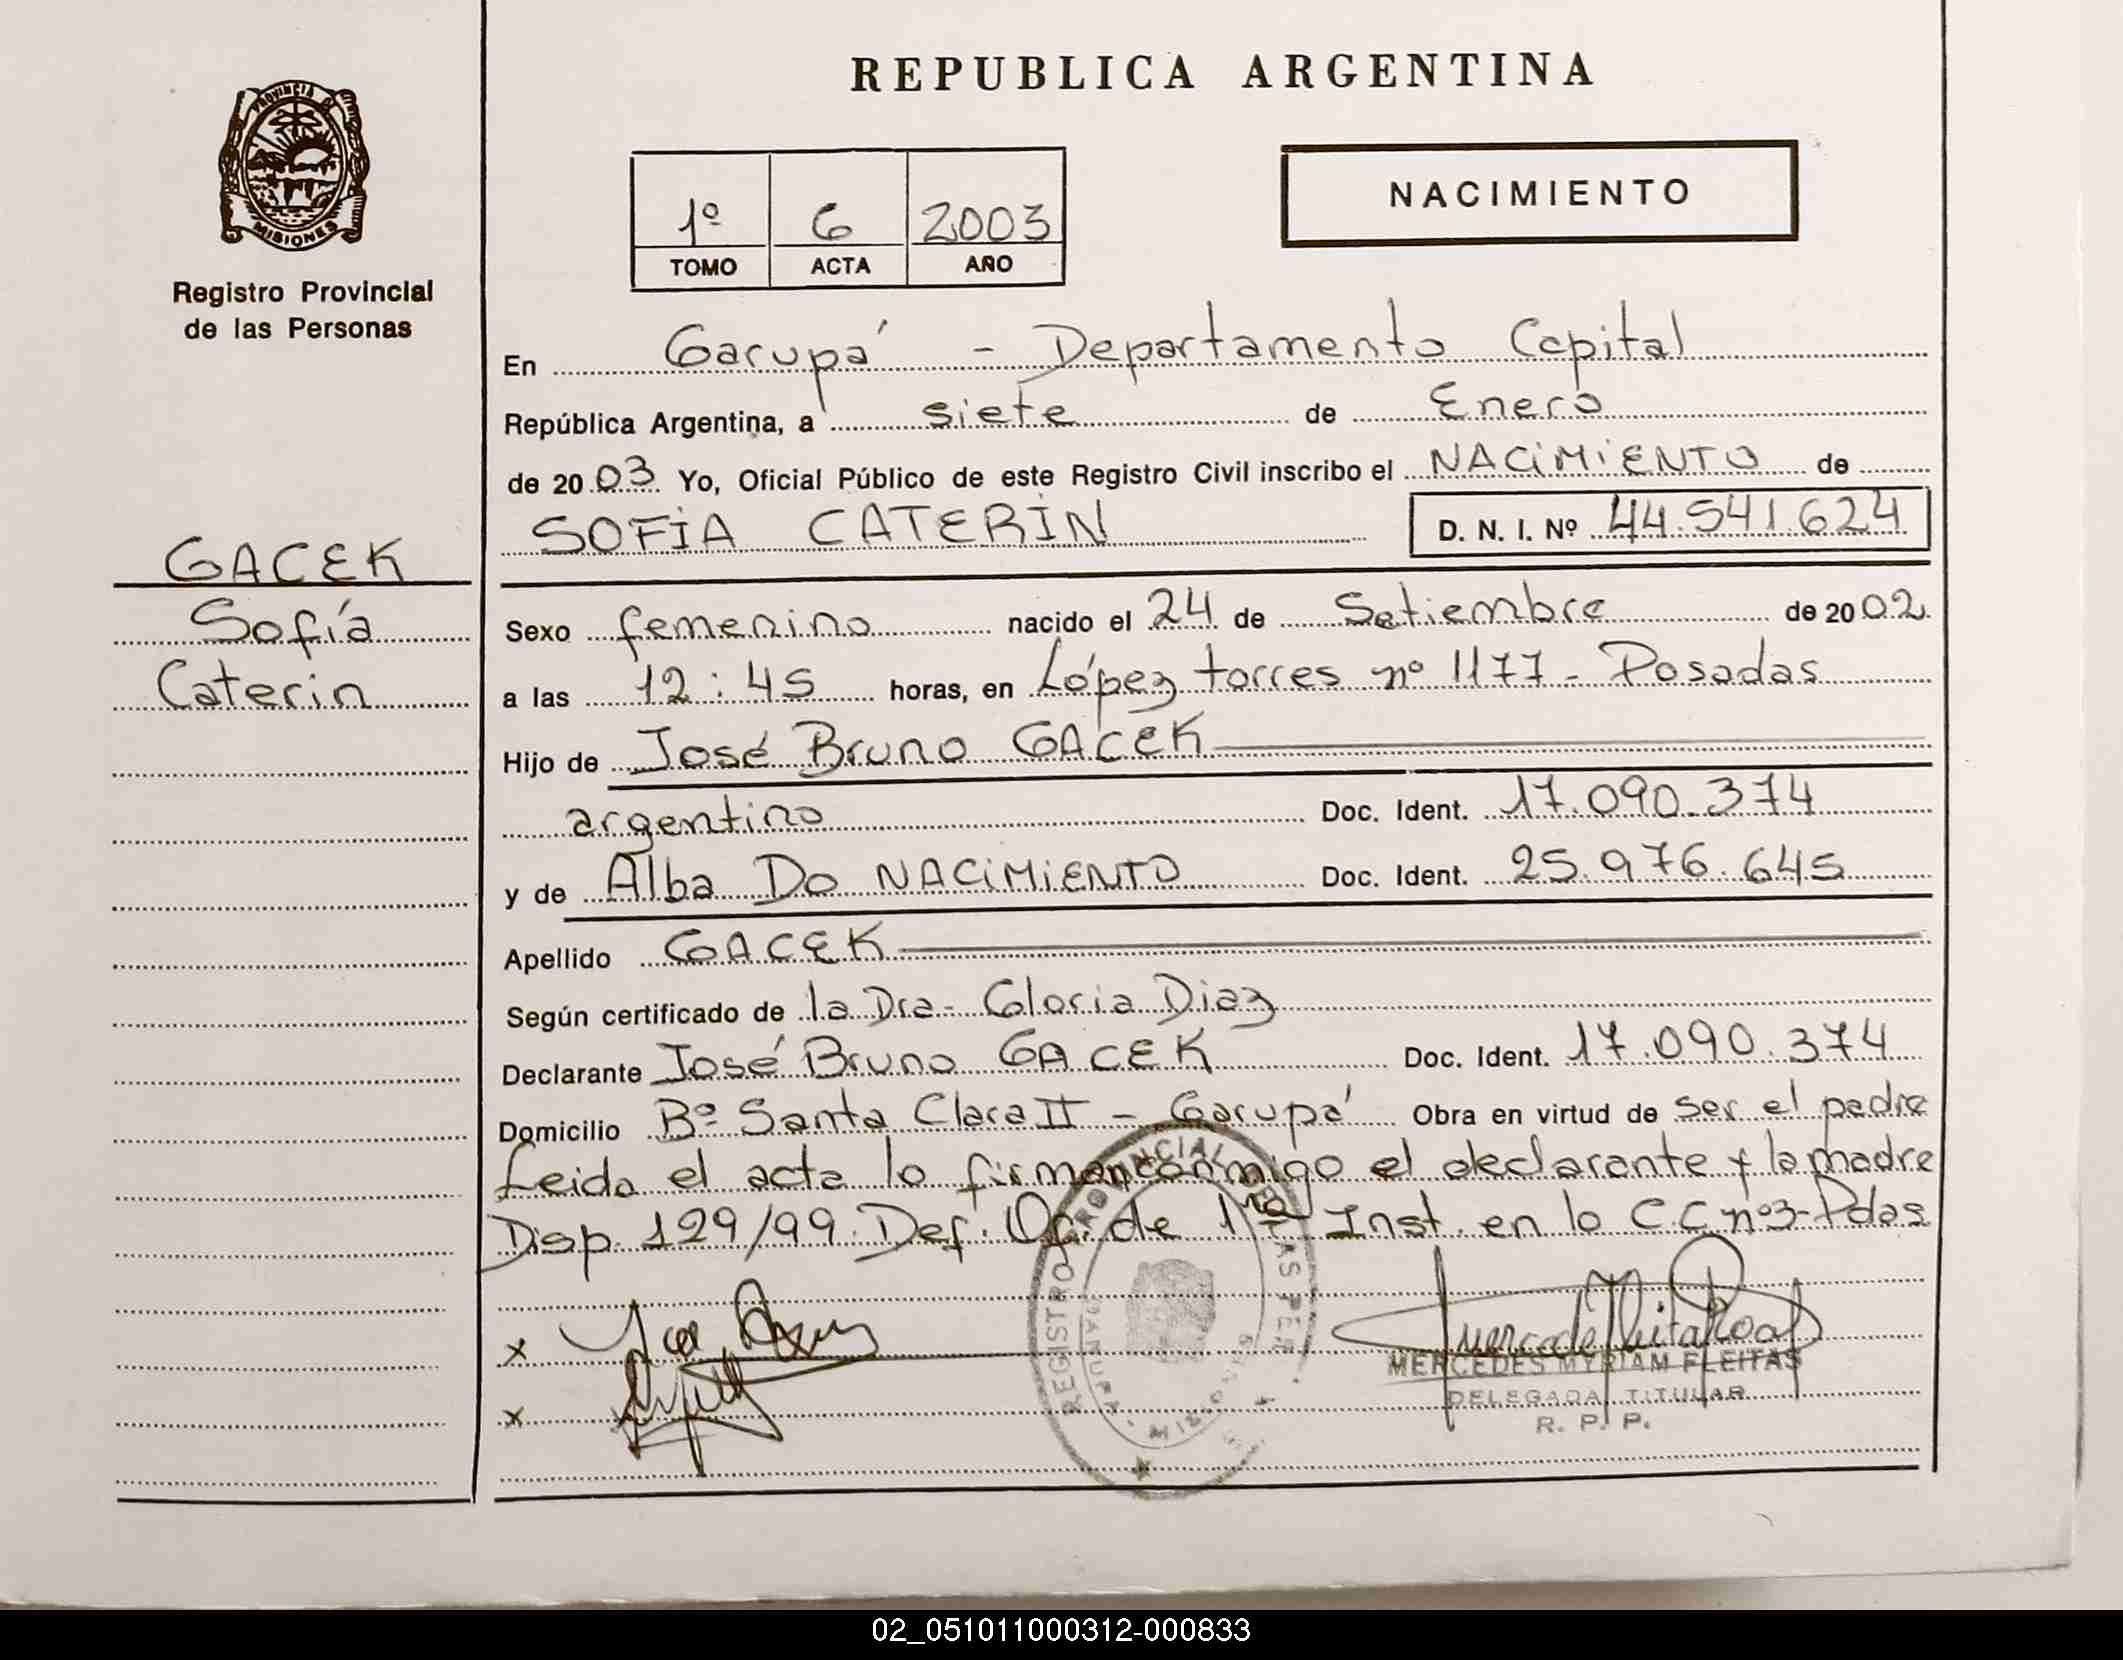 REPUBLICA ARGENTINA
PROVINCIA DE
MISIONES
Registro Provincial
de las Personas
1º 6 2003
TOMO ACTA AÑO
NACIMIENTO
En Garupá - Departamento Capital
República Argentina, a siete de Enero
de 2003 Yo, Oficial Público de este Registro Civil inscribo el NACIMIENTO de
SOFÍA CATERIN D. N. I. Nº 44.541.624
GACEK
Sofía
Caterin
Sexo femenino nacido el 24 de Setiembre de 2002
a las 12:45 horas, en López torres nº 1177 - Posadas
Hijo de José Bruno GACEK
argentino Doc. Ident. 17.090.374
y de Alba Do NACIMIENTO Doc. Ident. 25.976.645
Apellido GACEK
Según certificado de la Dra. Gloria Diaz
Declarante José Bruno GACEK Doc. Ident. 17.090.374
Domicilio Bº Santa Clara II - Garupá Obra en virtud de ser el padre
Leida el acta lo firman conmigo el declarante y la madre
Disp. 129/99. Def. Of. de 1ra Inst. en lo C.C. nº3-Pdas
x
x
REGISTRO PROVINCIAL DE LAS PER
MERCEDES MYRIAM FLEITAS
DELEGADA TITULAR
R. P. P.
02_051011000312-000833